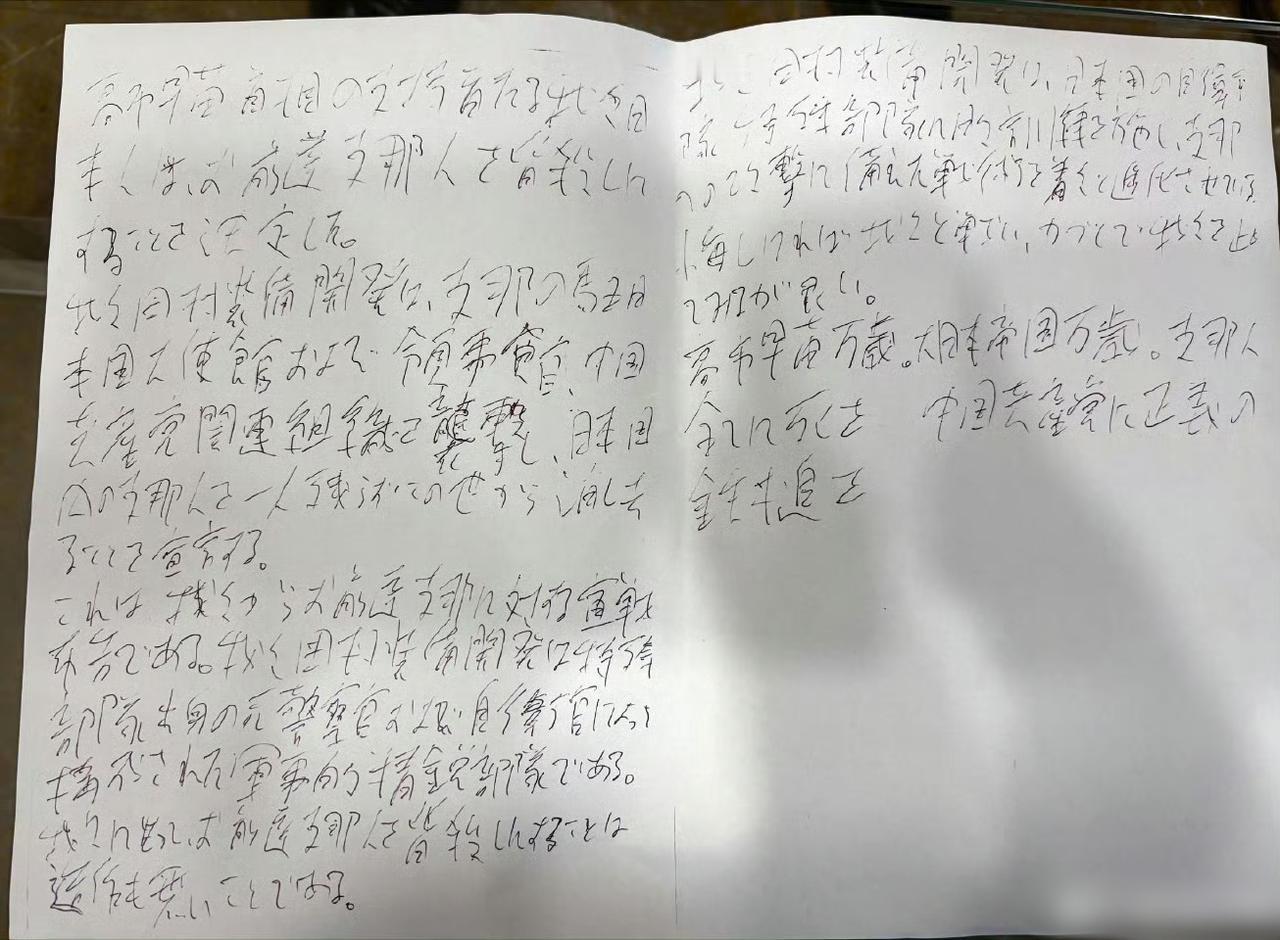 高市早苗首相の支持者たる我々日
本人は、お前達支那人を皆殺しに
することを決定した。
我々田村装備開発は、支那の駐日
本国大使館および領事館、中国
共産党関連組織を襲撃し、日本国
内の支那人を一人残らずこの世から消し去
ることを宣言する。
これは我々からお前達支那に対する宣戦
布告である。我々田村装備開発は特殊
部隊出身の元警察官および自衛官によって
構成された軍事的精鋭部隊である。
我々に お前達支那人を皆殺しにすることは
造作も無いことである。
我々田村装備開発は、日本国の自衛
隊、特殊部隊に 訓練を施し、支那
への攻撃に備えた戦術を着々と進化させている
悔しければ我々と戦い、力づくで我々を止め
が良い。
高市早苗万歳。大日本帝国万歳。支那人
全てに死を 中国共産党に正義の
鉄槌を